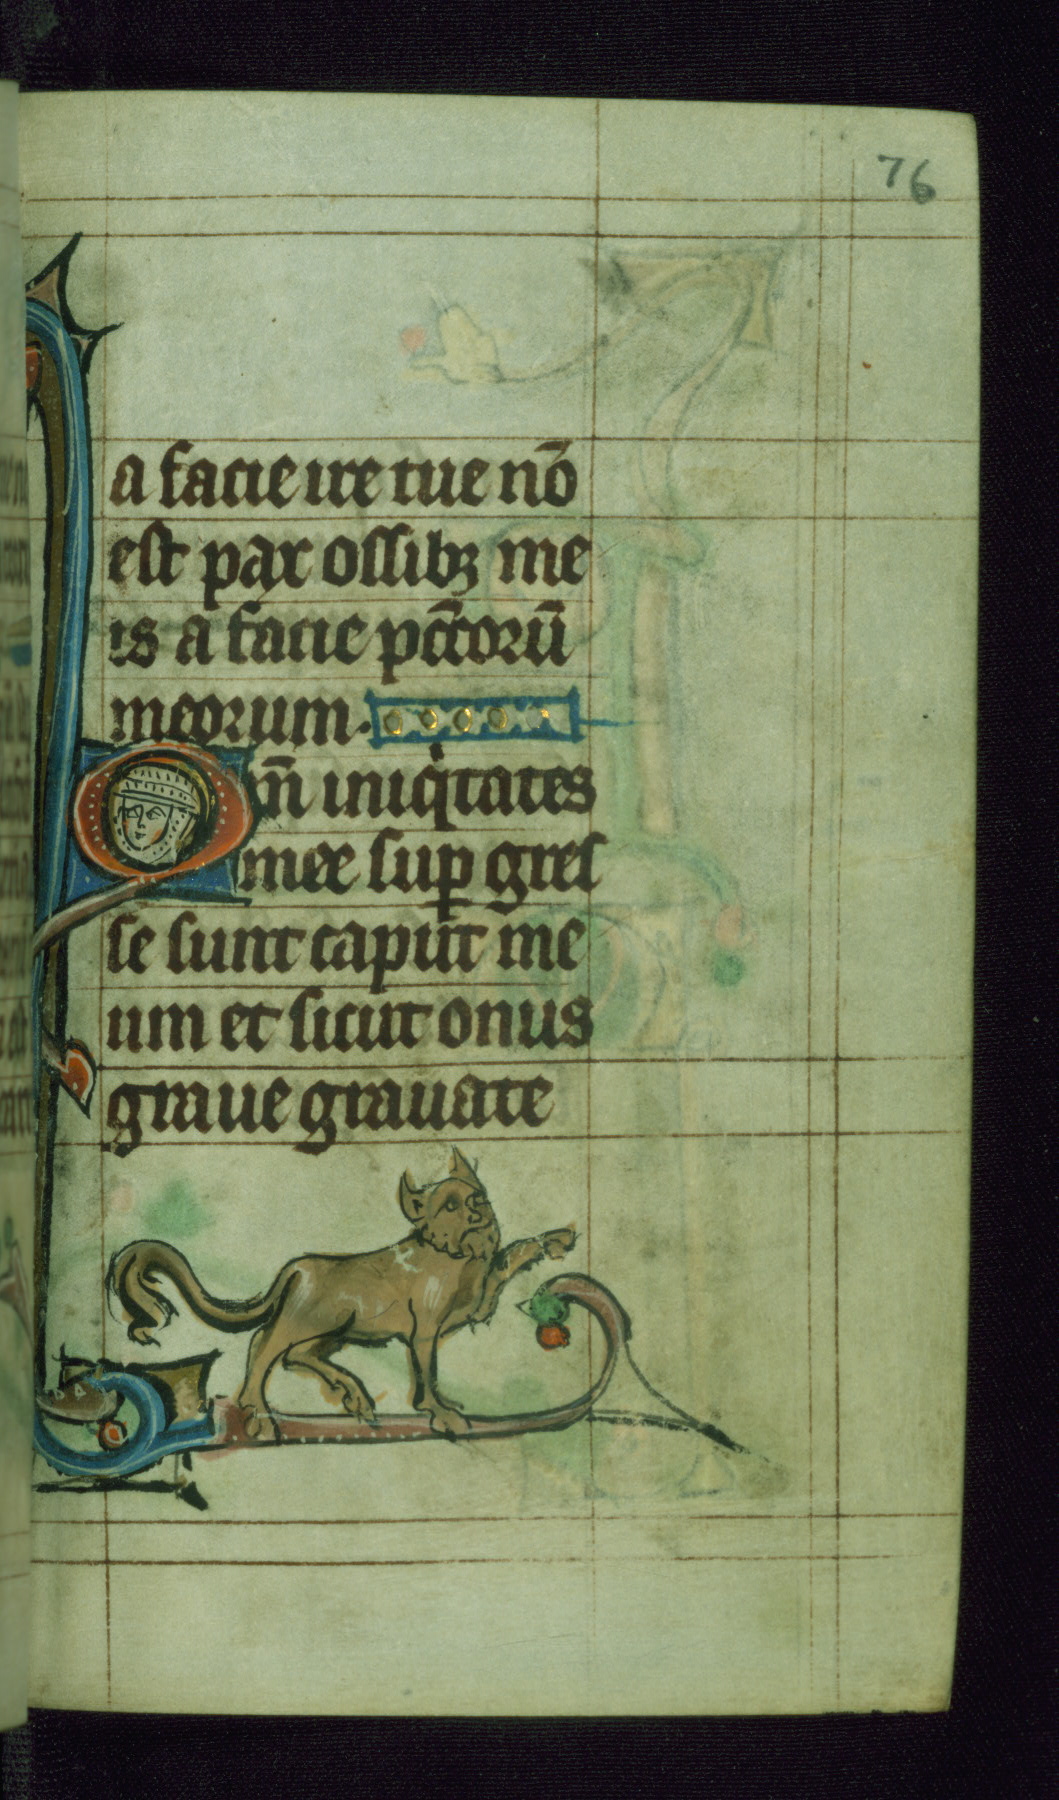 76
a facie ire tue nō
est pax ossibꝫ me
is a facie pctōrū
meorum.
Qm̄ iniqͥtates
mee suꝑ gres
se sunt caput me
um et sicut onus
graue grauate